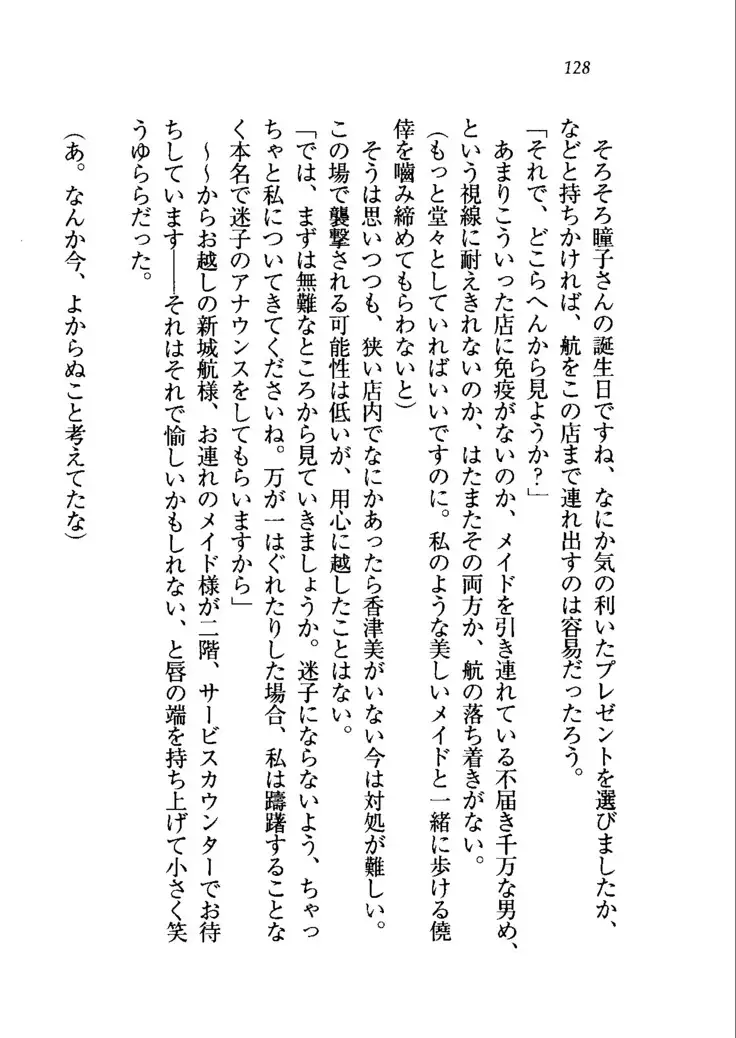 128
そろそろ瞳子さんの誕生日ですね、なにか気の利いたプレゼントを選びましたか、
などと持ちかければ、航をこの店まで連れ出すのは容易だったろう。
「それで、どこらへんから見ようか?」
あまりこういった店に免疫がないのか、メイドを引き連れている不届き千万な男め、
という視線に耐えきれないのか、はたまたその両方か、航の落ち着きがない。
(もっと堂々としていればいいですのに。私のような美しいメイドと一緒に歩ける僥
倖を嚙み締めてもらわないと)
そうは思いつつも、狭い店内でなにかあったら香津美がいない今は対処が難しい。
この場で襲撃される可能性は低いが、用心に越したことはない。
「では、まずは無難なところから見ていきましょうか。迷子にならないよう、ちゃっ
ちゃと私についてきてくださいね。万が一はぐれたりした場合、私は躊躇することな
く本名で迷子のアナウンスをしてもらいますから」
〜〜からお越しの新城航様、お連れのメイド様が二階、サービスカウンターでお待
ちしています――それはそれで愉しいかもしれない、と唇の端を持ち上げて小さく笑
うゆららだった。
(あ。なんか今、よからぬこと考えてたな)